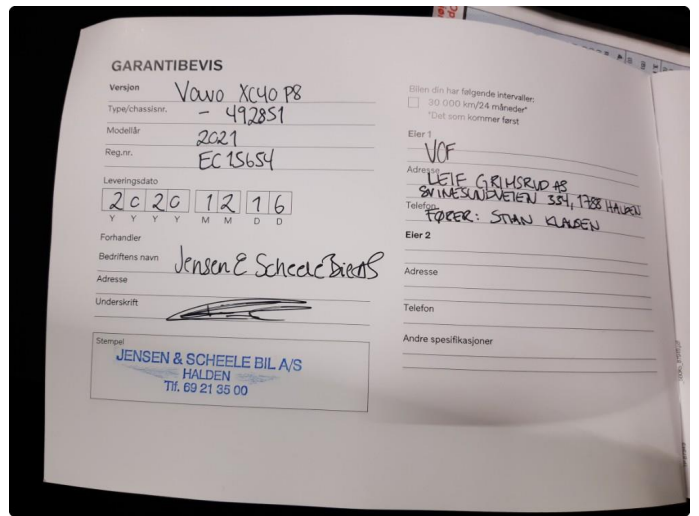 GARANTIBEVIS
Versjon Volvo XC40 P8
Type/chassisnr. - 492851
Modellår 2021
Reg.nr. EC15654
Leveringsdato
2020 12 16
Y Y Y Y M M D D
Forhandler
Bedriftens navn Jensen & Scheele Bil AS
Adresse
Underskrift
Stempel
JENSEN & SCHEELE BIL A/S
HALDEN
Tlf. 69 21 35 00
Bilen din har følgende intervaller:
30 000 km/24 måneder*
*Det som kommer først
Eier 1
VCF
Adresse LEIF GRIMSRUD AS
SVINESUNDVEIEN 334, 1788 HALDEN
Telefon FØRER: STIAN KLAUSEN
Eier 2
Adresse
Telefon
Andre spesifikasjoner